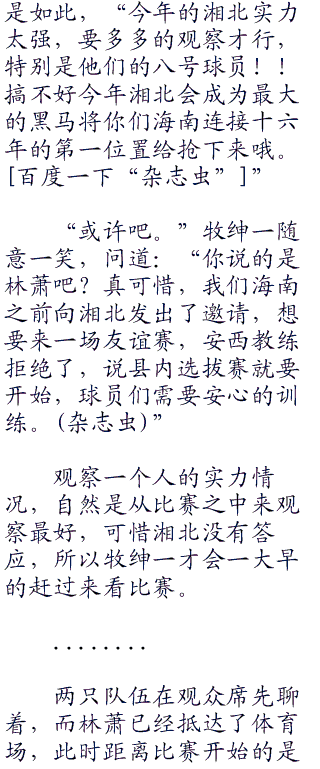 是如此，“今年的湘北实力
太强，要多多的观察才行，
特别是他们的八号球员！！
搞不好今年湘北会成为最大
的黑马将你们海南连接十六
年的第一位置给抢下来哦。
[百度一下“杂志虫”]”
“或许吧。”牧绅一随
意一笑，问道：“你说的是
林萧吧？真可惜，我们海南
之前向湘北发出了邀请，想
要来一场友谊赛，安西教练
拒绝了，说县内选拔赛就要
开始，球员们需要安心的训
练。(杂志虫)”
观察一个人的实力情
况，自然是从比赛之中来观
察最好，可惜湘北没有答
应，所以牧绅一才会一大早
的赶过来看比赛。
........
两只队伍在观众席先聊
着，而林萧已经抵达了体育
场，此时距离比赛开始的是